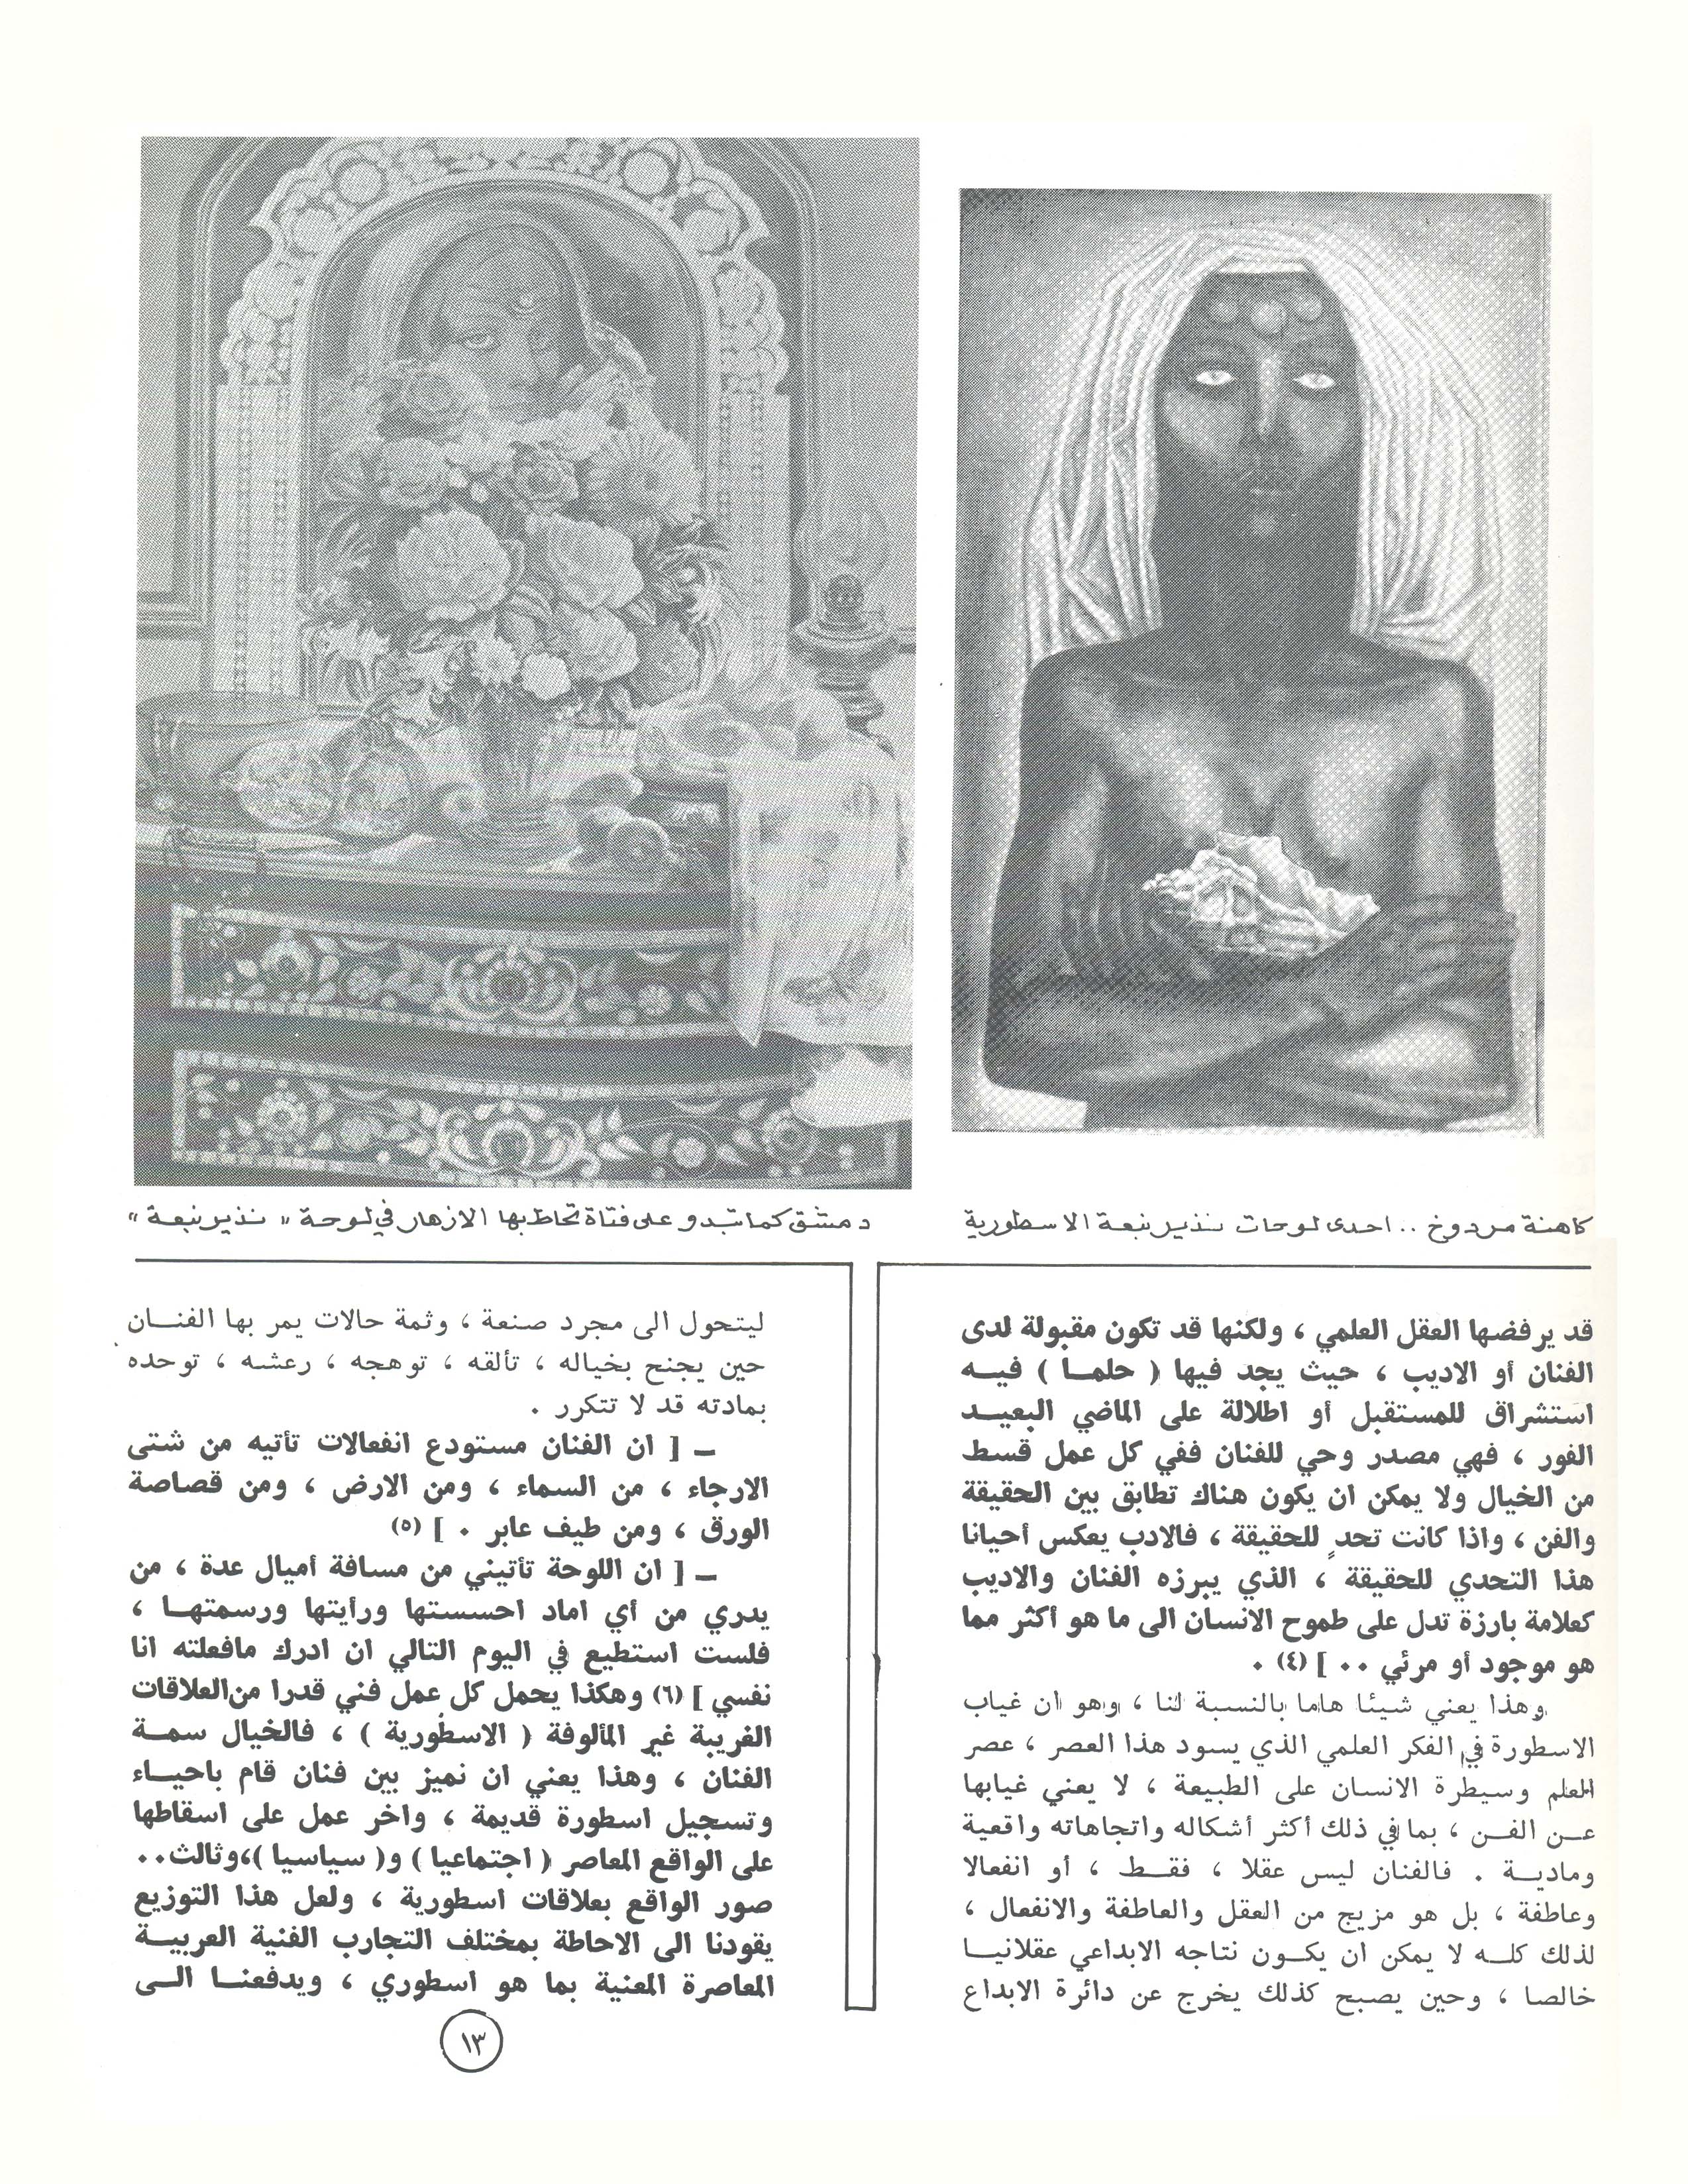 كاهنة مردوخ .. احدى لوحات نذير نبعة الاسطورية
دمشق كما تبدو على فتاة تحاط بها الازهار في لوحة « نذير نبعة »
قد يرفضها العقل العلمي ، ولكنها قد تكون مقبولة لدى
الفنان أو الاديب ، حيث يجد فيها ( حلمـا ) فيـه
استشراق للمستقبل أو اطلالة على الماضي البعيـد
الغور ، فهي مصدر وحي للفنان ففي كل عمل قسط
من الخيال ولا يمكن ان يكون هناك تطابق بين الحقيقة
والفن ، واذا كانت تحدٍ للحقيقة ، فالادب يعكس أحيانا
هذا التحدي للحقيقة ، الذي يبرزه الفنان والاديب
كعلامة بارزة تدل على طموح الانسان الى ما هو أكثر مما
هو موجود أو مرئي ٠٠ ] (٤) ٠
وهذا يعني شيئا هاما بالنسبة لنا ، وهو ان غياب
الاسطورة في الفكر العلمي الذي يسود هذا العصر ، عصر
العلم وسيطرة الانسان على الطبيعة ، لا يعني غيابها
عـن الفـن ، بما في ذلك أكثر أشكاله واتجاهاته واقعية
وماديـة . فالفنان ليس عقلا ، فقـط ، أو انفعالا
وعاطفة ، بل هو مزيج من العقل والعاطفة والانفعال ،
لذلك كلـه لا يمكن ان يكـون نتاجه الابداعي عقلانيـا
خالصا ، وحين يصبح كذلك يخرج عن دائرة الابداع
ليتحول الى مجرد صنعة ، وثمة حالات يمر بها الفنـان
حين يجنح بخياله ، تألقه ، توهجه ، رعشه ، توحده
بمادته قد لا تتكرر .
ـ [ ان الفنان مستودع انفعالات تأتيه من شتى
الارجاء ، من السماء ، ومن الارض ، ومن قصاصة
الورق ، ومن طيف عابر ٠ ] (٥)
ـ [ ان اللوحة تأتيني من مسافة أميال عدة ، من
يدري من أي اماد احسستها ورأيتها ورسمتهـا ،
فلست استطيع في اليوم التالي ان ادرك مافعلته انا
نفسي ] (٦) وهكذا يحمل كل عمل فني قدرا من العلاقات
الغريبة غير المألوفة ( الاسطورية ) ، فالخيال سمـة
الفنان ، وهذا يعني ان نميز بين فنان قام باحيـاء
وتسجيل اسطورة قديمة ، واخر عمل على اسقاطها
على الواقع المعاصر ( اجتماعيا ) و( سياسيا )،وثالث٠٠
صور الواقع بعلاقات اسطورية ، ولعل هذا التوزيع
يقودنا الى الاحاطة بمختلف التجارب الفنية العربيـة
المعاصرة المعنية بما هو اسطوري ، ويدفعنـا الـى
١٣